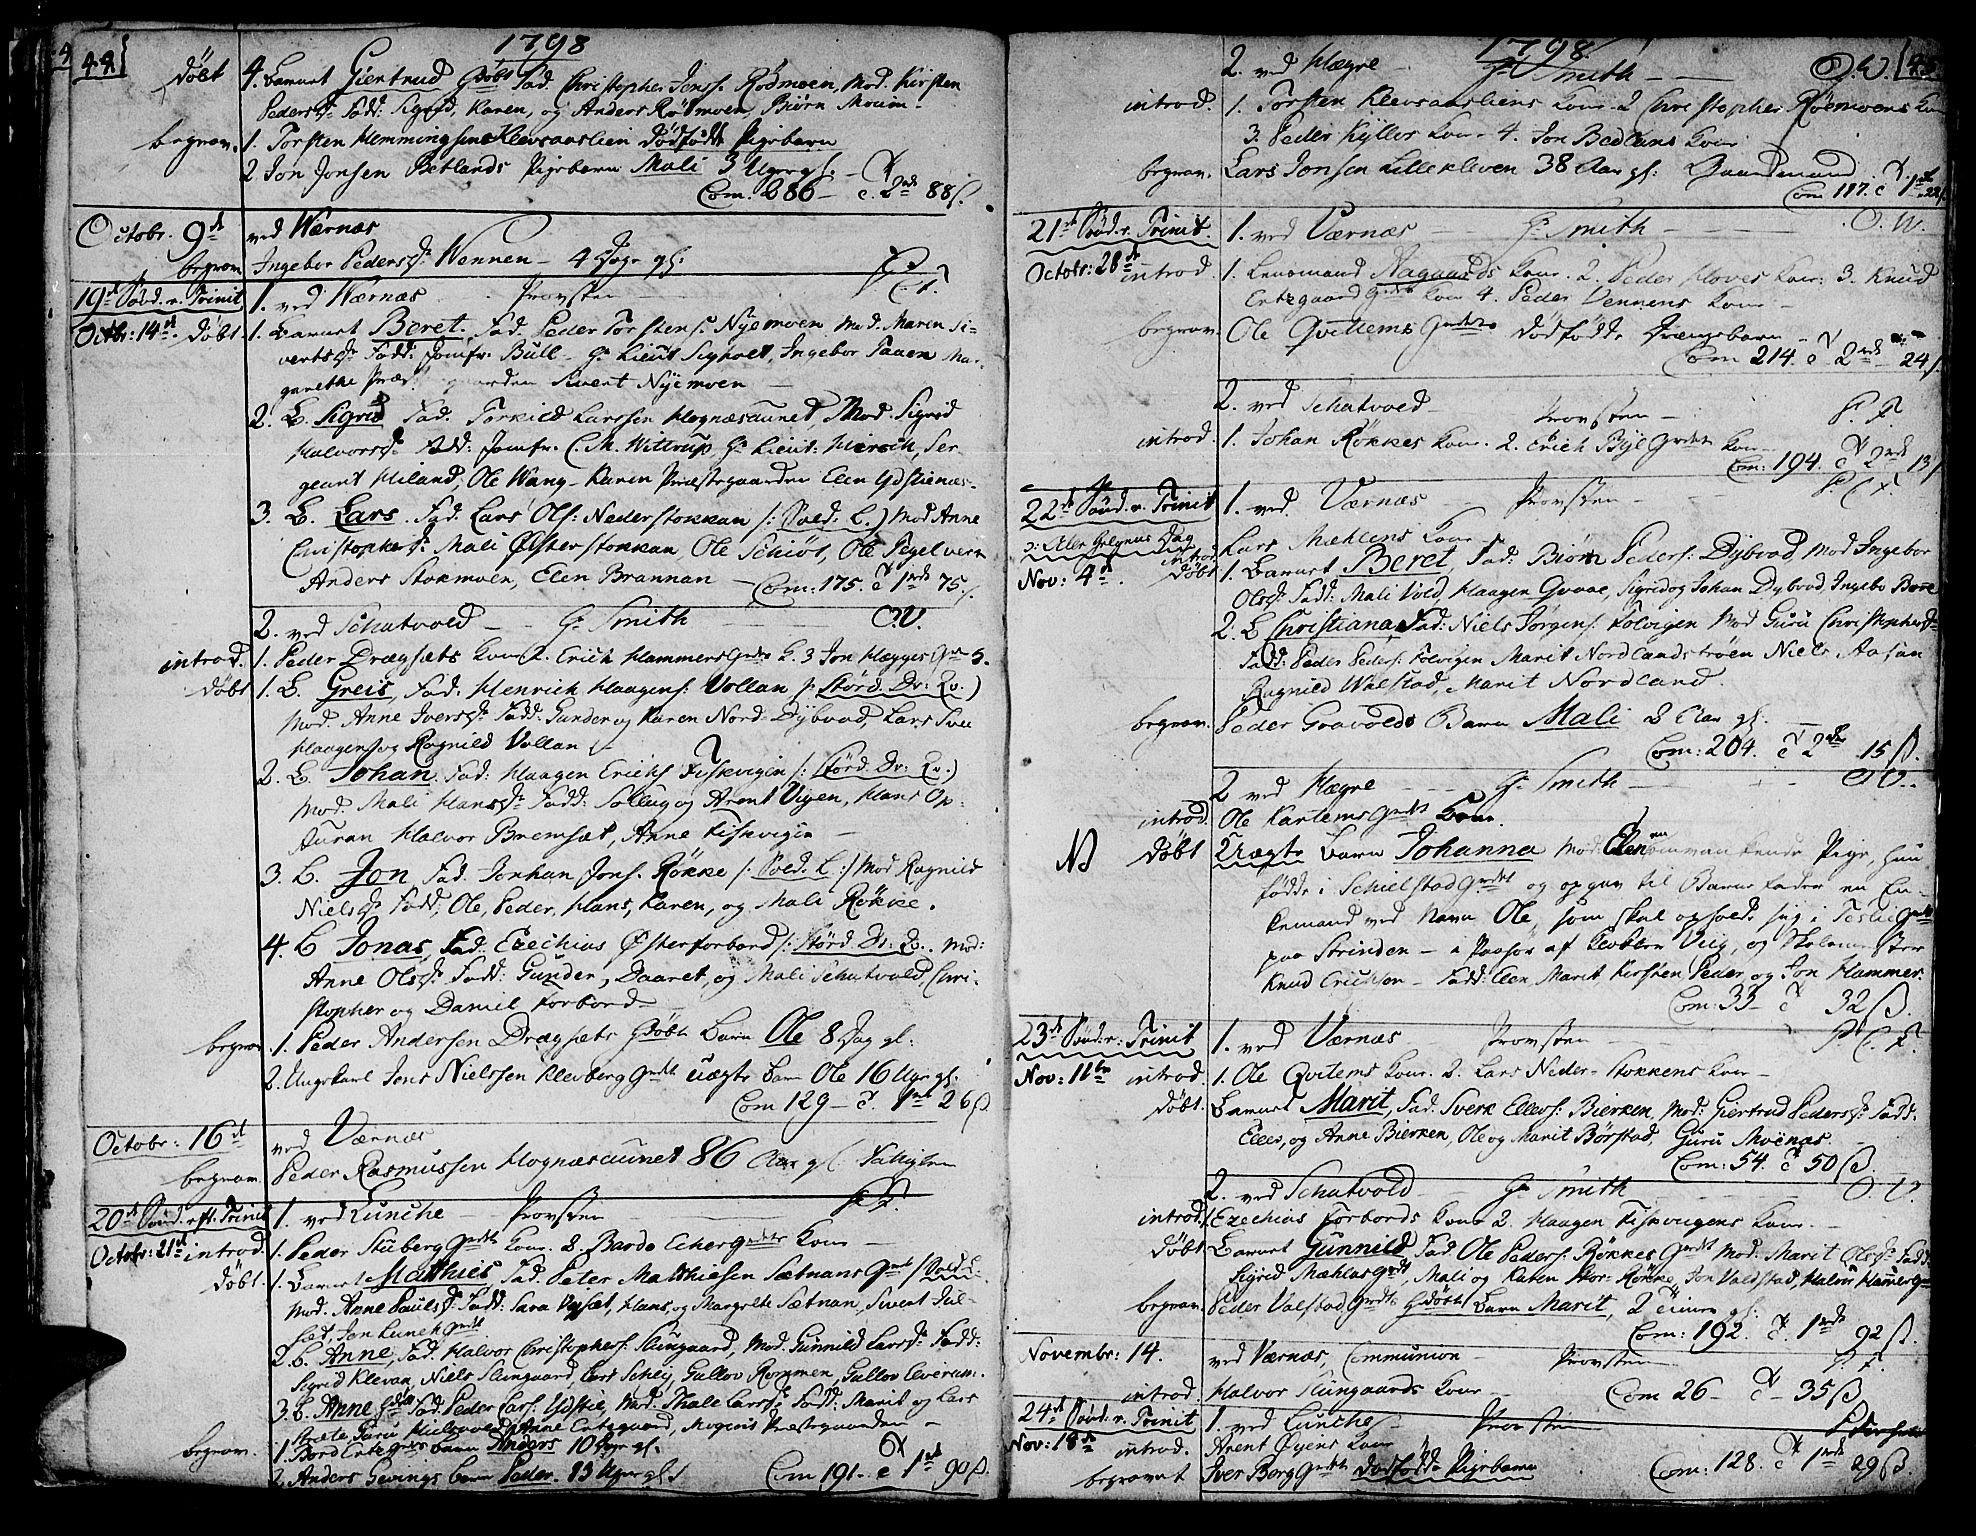 44
1798
døbt 4. Barnet Giertrud Gdøbt Fad. Christopher Jons. Rødmoen, Mod. Kirsten
Pedersd. Fadd: Sigrid, Karen, og Anders Rødmoen, Biørn Moum
begrav. 1. Torsten Hemmingsens Klevsaaslien Dødfødt Pigebarn
2. Jon Jonsen Betlands Pigebarn Mali 3 Uger gl.
Com. 286 - c. 2 88 s.
Octobr. 9de ved Wærnæs
begrav Ingebor Pedersd. Wennen - 4 Dage gl.
19de Sønd. e. Trinit. 1. ved Wærnæs Provsten P. F.
Octbr: 14de døbt 1. Barnet Beret. Fad. Peder Torstens. Nyemoen Mod. Maren Si-
vertsd. Fadd: Jomfr. Bull - Hr Lieut Sigholt, Ingebor Paaen Ma-
garethe Sivert Nyemoen
2. B. Sigrid Fad. Torkild Larssen Hognæsaunet, Mod. Sigrid
Halvorsd. Fadd: Jomfr. C. M. Wittrup Hr Lieut: Hersch, Ser
geant Hiland, Ole Wang - Karen Præstegaarden Elen Ydstienæs-
3. B. Lars. Fad. Lars Ols: Nederstokkan /: Sold: L.) Mod Anne
Christophersd. Mali Østerstokkan, Ole Schiøt, Ole
Anders Stokmoen, Elen Brannan - Com: 175. c 1 75.
2. ved Schatvold - Hr Smith O. W.
introd. 1. Peder Drægsæts Kone 2. Erich Hammers K. 3 Jon Hegges
døbt 1. B. Greis, Fad: Henrich Haagens: Vollan
Mod. Anne Iversd. Fadd. Gunder og Karen Nord-Dybvad, Lars
Haagens og Ragnild Vollan
2. B. Johan Fad: Haagen Erichs Fiskvigen
Mod: Mali Hansd. Fadd: Sollug og Arent Vigen, Hans Op-
Auran Halvor Bremsæt, Anne Fiskvigen
3. B. Jon Fad. Johan Jons. Røkke /: Sold. L :/ Mod Ragnild
Nielsd. Fadd, Ole, Peder, Hans, Karen, og Mali Røkke.
4. B Jonas, Fad. Ezechias Østerforbord Mod:
Anne Olsd. Fadd: Gunder, Daaret, og Mali Schatvold, Chri-
stopher og Daniel Forbord
begrav. 1. Peder Andersen Drægsæts Gdøbt Barn Ole 8 Dag gl:
2. Ungekarl Jens Nielssen Klevberg uægte Barn Ole 16 Uger gl.
Com 129 - c. 1 26 s.
Octobr: 16de ved Værnæs
begrav. Peder Rasmussen Hognæsaunet 86 Aar gl.
20de Sønd. eft. Trinit 1. ved Lunche Provsten P. F.
Octobr: 21de introd. 1. Peder Stuberg Kone. 2. Bardo Kone
døbt. 1. Barnet Matthies Fad. Peter Matthiesen Sætnans
Mod. Anne Paulsd. Fadd: Sara Hans, og Margrete Sætnan, Sivert
sæt, Jon Lunch
2. B. Anne, Fad. Halvor Christophers: Slungaard, Mod. Gunnild Larsd. Fadd:
Sigrid Klevan, Niels Slungaard, Lars Schey, Gullov Rommen, Gullov Elverum.
3. B. Anne Fad: Peder Lars. Ydstie, Mod. Larsd. Fadd: Marit og Lars
Anne Ertzgaard, Mogens Præstegaarden
begrav. 1. Bord Barn Anders 10 Dage gl.
2. Anders Gevings barn Peder 13 Uger gl. Com 191- c 1 90 s.
45
1798
2. ved Hegre Hr Smith O. W.
introd. 1. Torsten Klevsaasliens Kone. 2 Christopher Rødmoens
3. Peder Kyllor Kone - 4. Jon Bedlans Kone
begrav. Lars Jonsen Lillekleven 38 Aar gl: Gaardmand
Com 117. c 1 22
21de Sønd. e. Trinit. 1. ved Værnæs Hr Smith O. W.
Octobr: 28de introd. 1. Lensmand Aagaards Kone. 2. Peder Hoves Kone: 3. Knud
Ertzgaard Kone 4. Peder Vennens Kone
begrav. Ole Qvitlems Dødfødde Drengebarn
Com 214. c 2 24 s.
2. ved Schatvold Provsten P. F.
introd. 1. Johan Røkkes Kone. 2. Erich Byl Kone
Com: 194. c 2 13
22de Sønd. e. Trinit 1. ved Værnæs Provsten P. F.
o: Alle Helgenes Dag introd Lars Mehlens Kone
Nov: 4de. døbt 1. Barnet Beret, Fad: Biørn Peders: Dybvad, Mod Ingebor
Olsd: Fadd: Mali Vold, Haagen Sigrid og Johan Dybvad, Ingebor
2. B Christiana, Fad: Niels Jørgens: Folvigen Mod Guru Christophersd
Fadd: Peder Peders: Folvigen Marit Nordlandstrøen Niels Aasan
Ragnild Walstad, Marit Nordland.
begrav. Peder Gravolds Barn Mali 2 Aar gl.
Com: 204. c 2 15 s.
2 ved Hegre Hr Smith O W.
introd. Ole Kartems Kone.
NB døbt Uægte Barn Johanna Mod: Elen Pige, hun
fødde i Schielstad og opgav til Barnefader en En-
kemand ved Navn Ole, som skal opholde sig i
paa Strinden - a Paasør af Klokker Veig, og Skolemester
Knud Erichson - Fadd: Elen Marit Kirsten Peder, og Jon Hammer.
Com: 33 c 32 s.
23de Sønd. e: Trinit 1. ved Værnæs Provsten P. F.
Nov: 11te introd. 1. Ole Qvitems Kone. 2. Lars Neder-Stokkens Kone
døbt. Barnet Marit, Fad. Sverk Ellevs: Bierken, Mod: Giertrud Pedersd: Fadd:
Ellev, og Anne Bierken, Ole og Marit Børstad, Guru Moenæs.
Com: 54. c 50 s.
2. ved Schatvold Hr Smith O W.
introd. 1. Ezechias Forbords Kone 2. Haagen Fiskvigens Kone.
døbt. Barnet Gunnild Fad Ole Peders: Røkkes Mod. Marit Olsd: Fadd:
Sigrid Mæhlas, Mali og Karen Stor-Røkke, Jon Valstad, Halvor Hamer
begrav. Peder Valstad Gdøbt Barn Marit, 2 Timer gl.
Com: 192. c. 1 92 s.
Novembr: 14. ved Værnæs, Communion Provsten P. F.
introd. Halvor Slungaards Kone Com 26 - c - 35 s
24de Sønd. e. Trinit 1. ved Lunche Provsten
Nov: 18de introd. Arent Øyens Kone
begravet Iver Borg Dødfødde Pigebarn Com: 128. c 1 29 s.